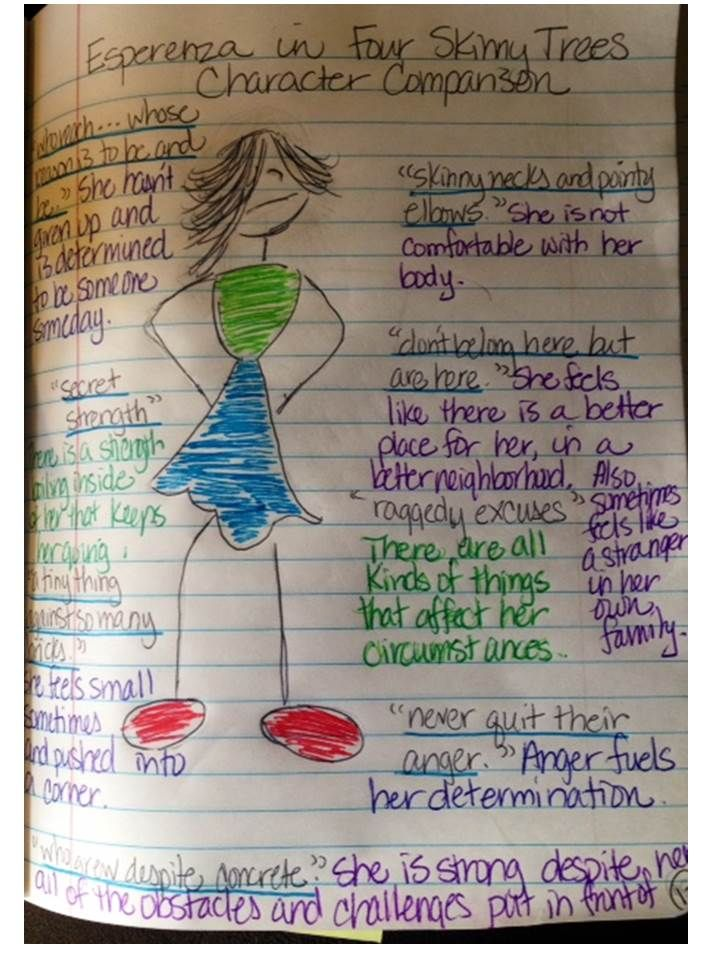 Esperenza in Four Skinny Trees
Character Comparison
who reach... whose
reason is to be and
be." She hasn't
given up and
is determined
to be someone
someday.
"secret
strength"
There is a strength
inside
of her that keeps
her going.
"a tiny thing
against so many
bricks."
She feels small
sometimes
and pushed into
a corner.
"skinny necks and pointy
elbows." She is not
comfortable with her
body.
"don't belong here but
are here." She feels
like there is a better
place for her, in a
better neighborhood. Also
sometimes
feels like
a stranger
in her
own
family.
"raggedy excuses"
There are all
kinds of things
that affect her
circumstances.
"never quit their
anger." Anger fuels
her determination.
"who grew despite concrete." She is strong despite her
all of the obstacles and challenges put in front of